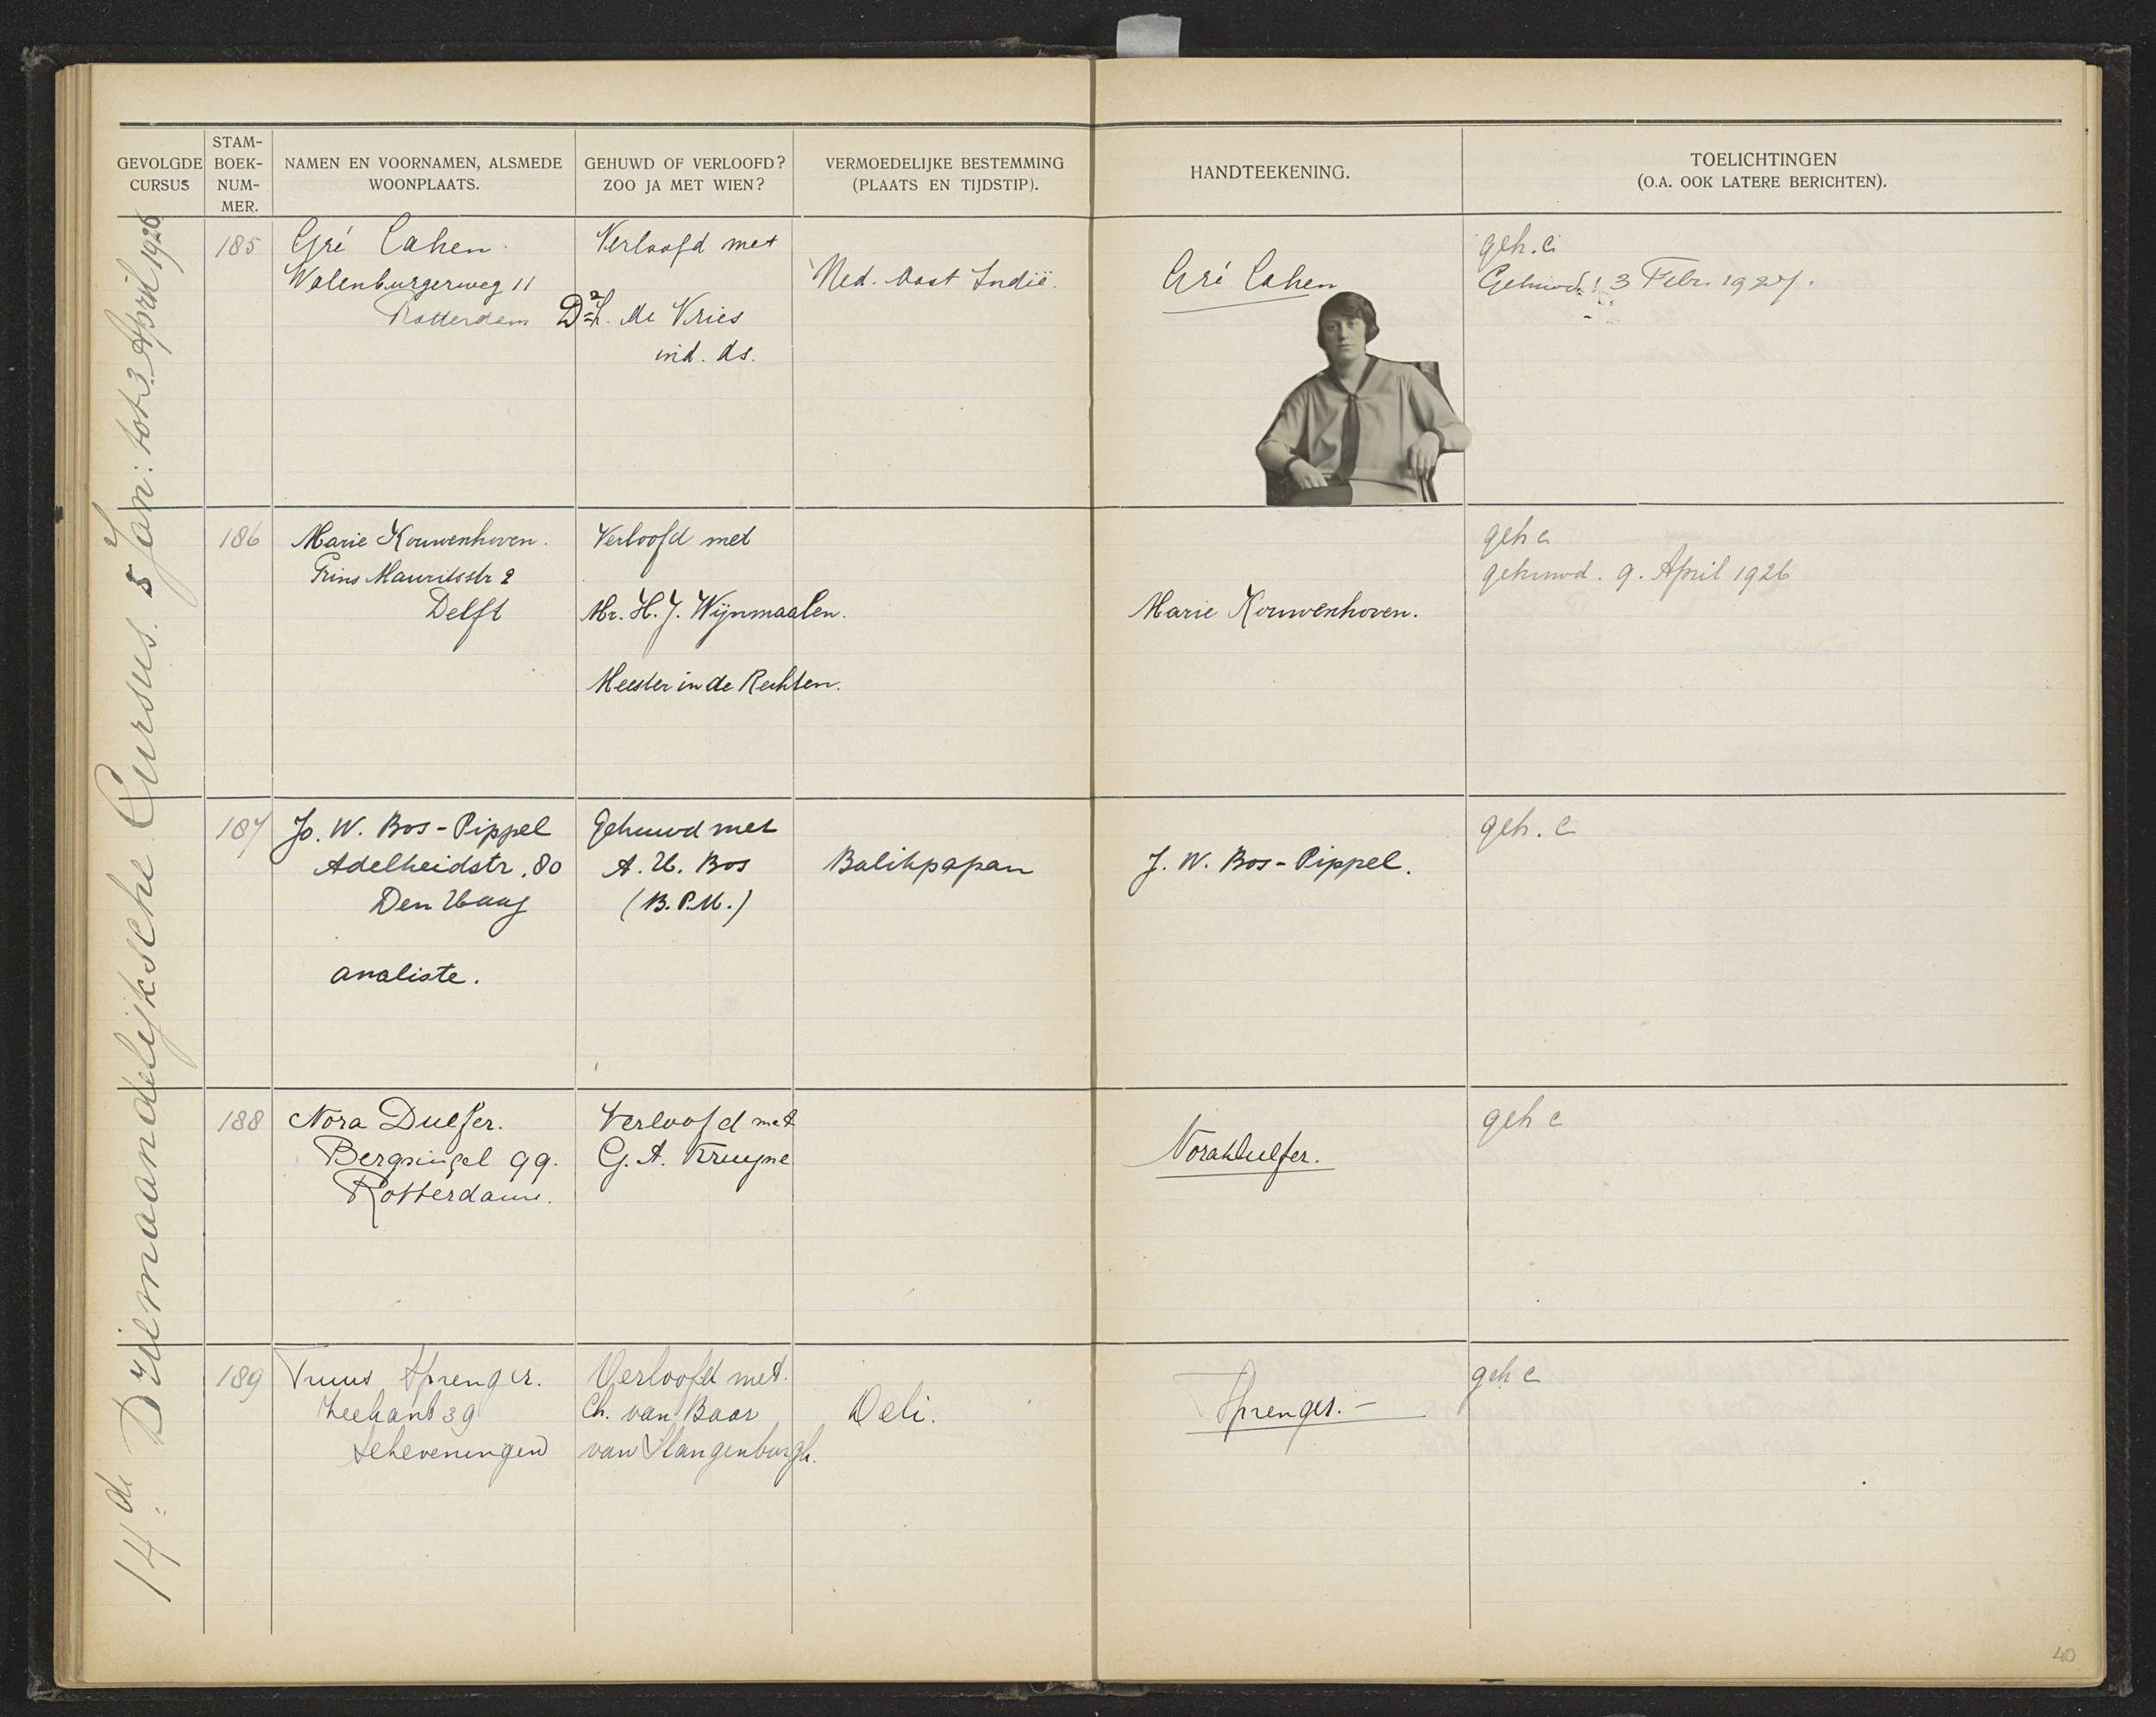 GEVOLGDE CURSUS
STAM-BOEK-NUM-MER.
NAMEN EN VOORNAMEN, ALSMEDE WOONPLAATS.
GEHUWD OF VERLOOFD? ZOO JA MET WIEN?
VERMOEDELIJKE BESTEMMING (PLAATS EN TIJDSTIP).
HANDTEEKENING.
TOELICHTINGEN (O.A. OOK LATERE BERICHTEN).
14de Driemaandelijksche Cursus. 5 Jan: tot 3 April 1926
185
Gré Cahen.
Walenburgerweg 11
Rotterdam
Verloofd met
de Vries
ind. ds.
Ned. Oost Indië.
Gré Cahen
geh. c.
Gehuwd! 3 Febr. 1927.
186
Marie Kouwenhoven.
Prins Mauritsstr 2
Delft
Verloofd met
Mr. H. J. Wijnmaalen.
Meester in de Rechten.
Marie Kouwenhoven.
geh c
gehuwd. 9. April 1926
187
Jo. W. Bos-Pippel
Adelheidstr. 80
Den Haag
analiste.
Gehuwd met
A. H. Bos
(B.P.M.)
Balikpapan
J. W. Bos-Pippel.
geh. c
188
Nora Dulfer.
Bergsingel 99.
Rotterdam.
Verloofd met
G. A. Kruyne
Nora Dulfer.
geh c
189
Truus Sprenger.
Zeekant 39
Scheveningen
Verloofd met.
Ch. van Baar
van Slangenburgh.
Deli.
Sprenger. —
geh c
40